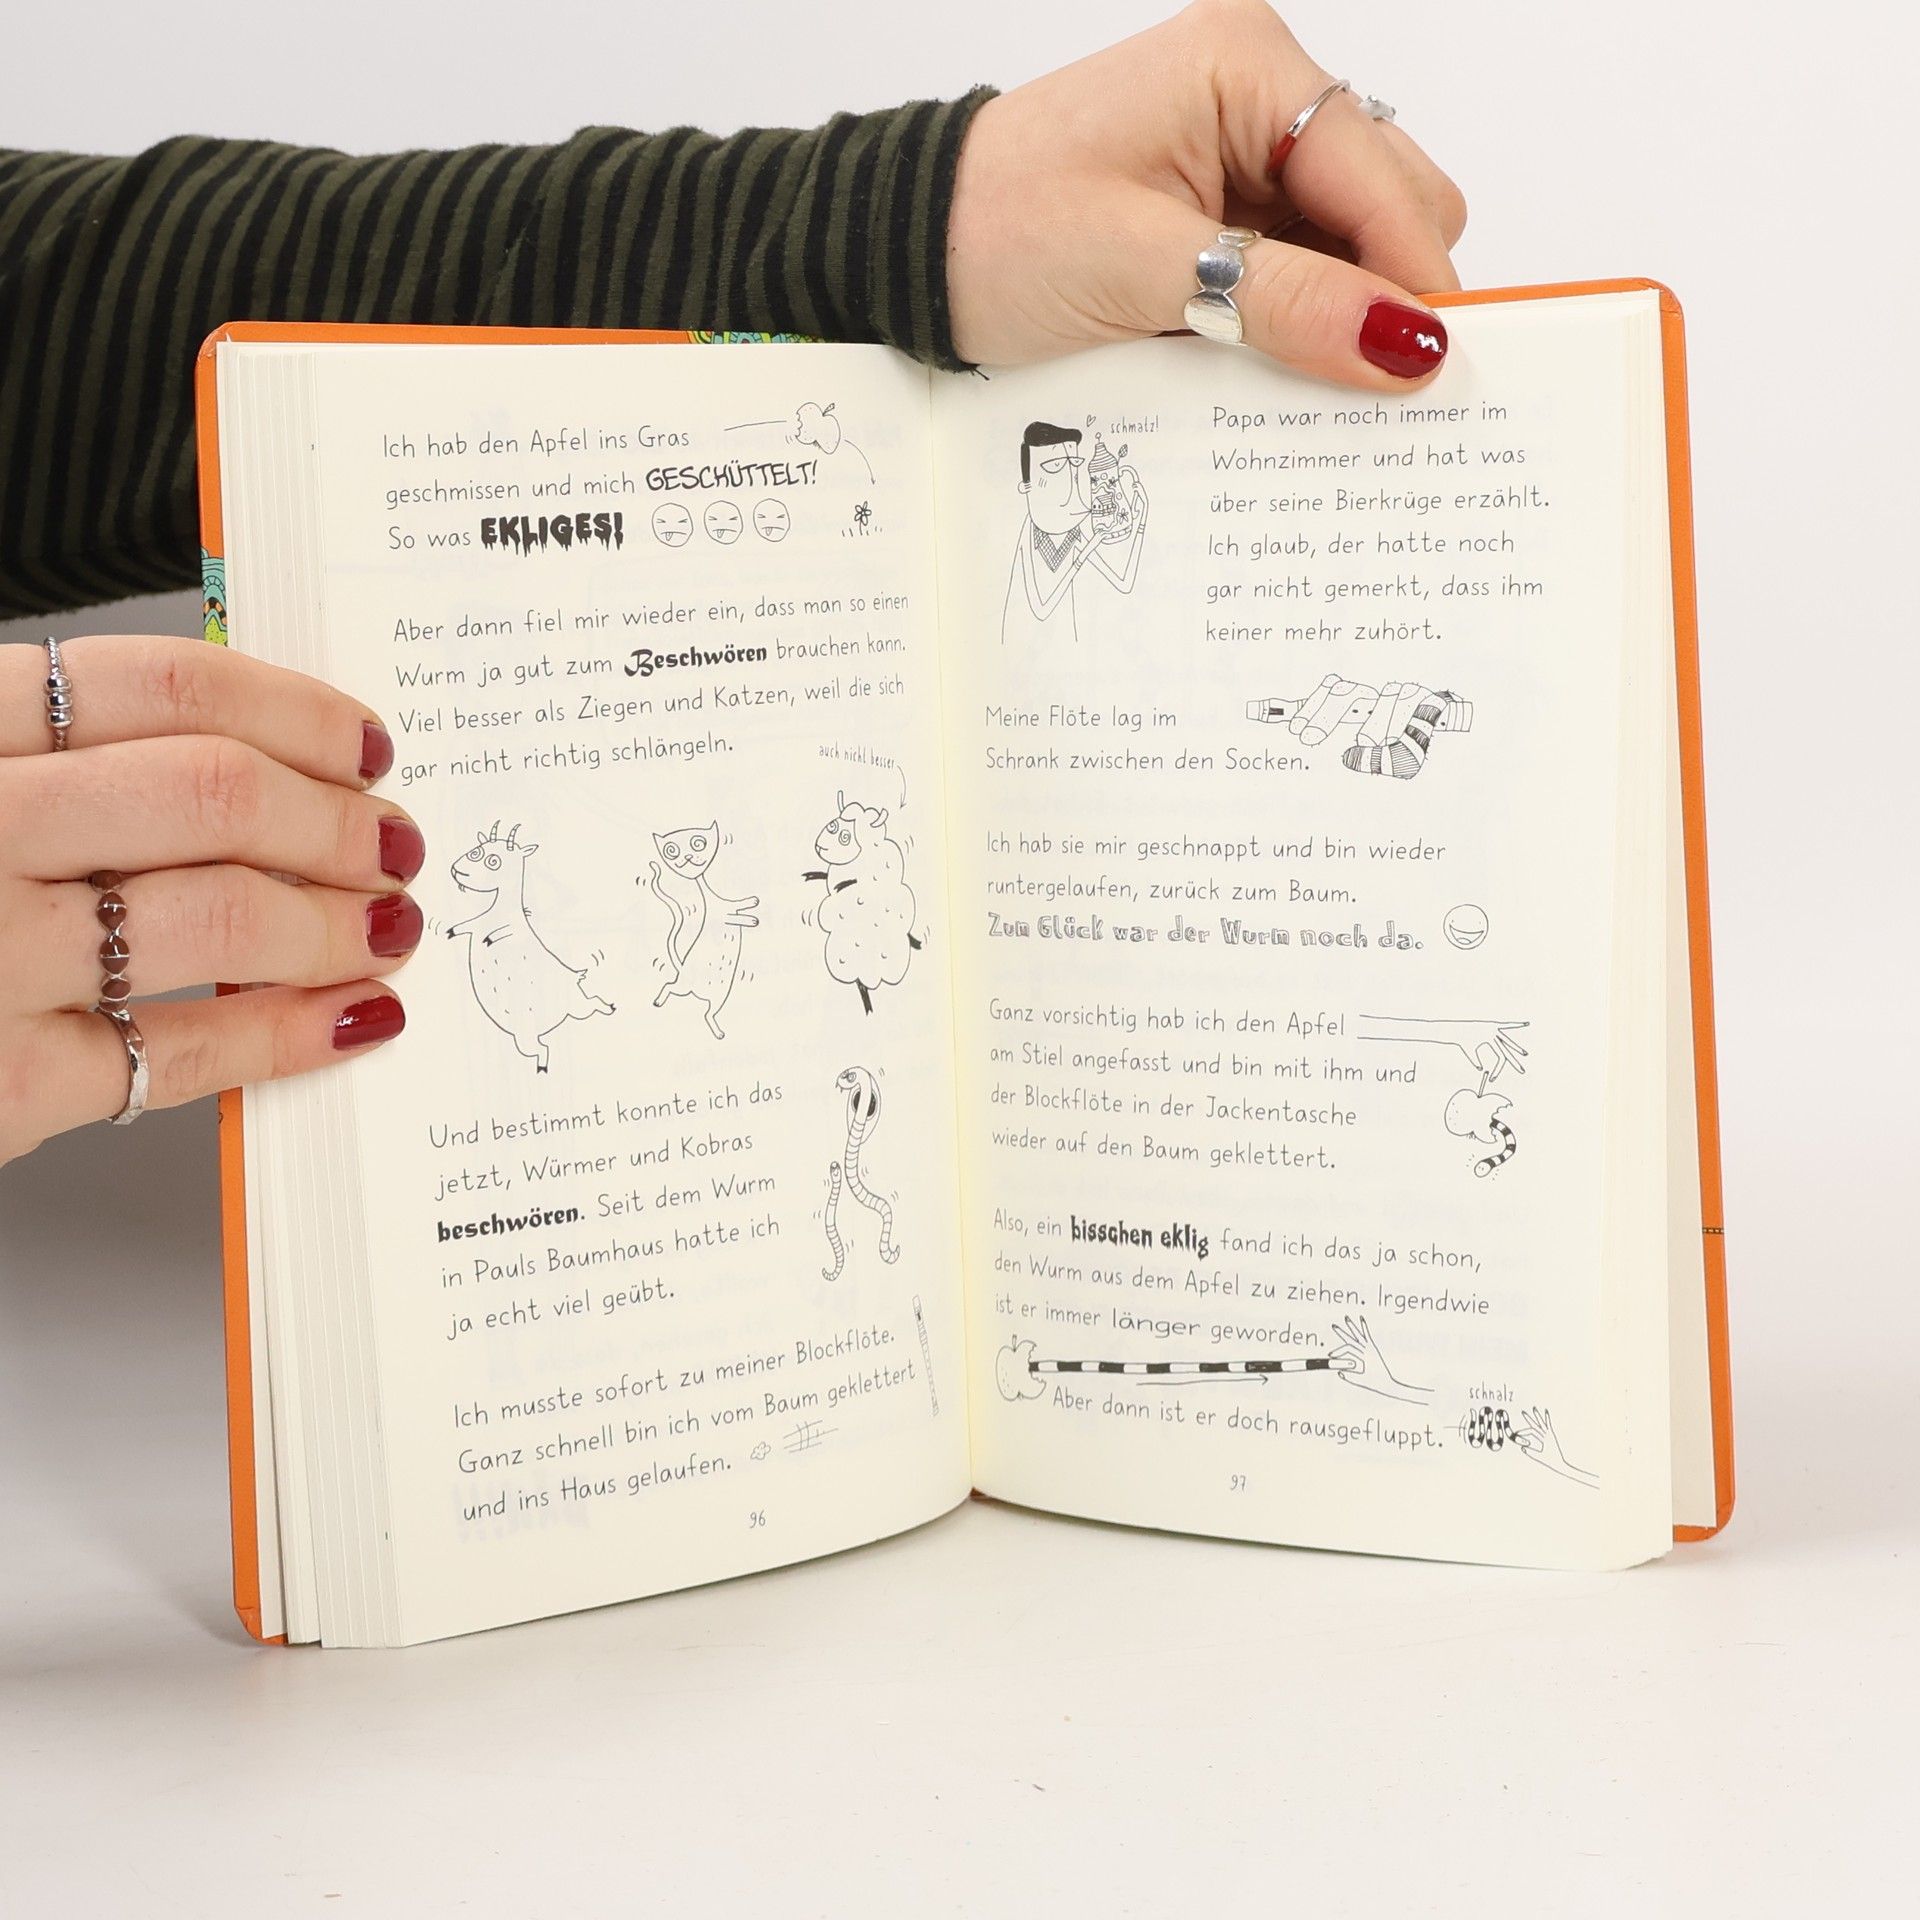 Ich hab den Apfel ins Gras
geschmissen und mich GESCHÜTTELT!
So was EKLIGES!
Aber dann fiel mir wieder ein, dass man so einen
Wurm ja gut zum Beschwören brauchen kann.
Viel besser als Ziegen und Katzen, weil die sich
gar nicht richtig schlängeln.
auch nicht besser
Und bestimmt konnte ich das
jetzt, Würmer und Kobras
beschwören. Seit dem Wurm
in Pauls Baumhaus hatte ich
ja echt viel geübt.
Ich musste sofort zu meiner Blockflöte.
Ganz schnell bin ich vom Baum geklettert
und ins Haus gelaufen.
96
schmatz!
Papa war noch immer im
Wohnzimmer und hat was
über seine Bierkrüge erzählt.
Ich glaub, der hatte noch
gar nicht gemerkt, dass ihm
keiner mehr zuhört.
Meine Flöte lag im
Schrank zwischen den Socken.
Ich hab sie mir geschnappt und bin wieder
runtergelaufen, zurück zum Baum.
Zum Glück war der Wurm noch da.
Ganz vorsichtig hab ich den Apfel
am Stiel angefasst und bin mit ihm und
der Blockflöte in der Jackentasche
wieder auf den Baum geklettert.
Also, ein bisschen eklig fand ich das ja schon,
den Wurm aus dem Apfel zu ziehen. Irgendwie
ist er immer länger geworden.
schnalz
Aber dann ist er doch rausgefluppt.
97